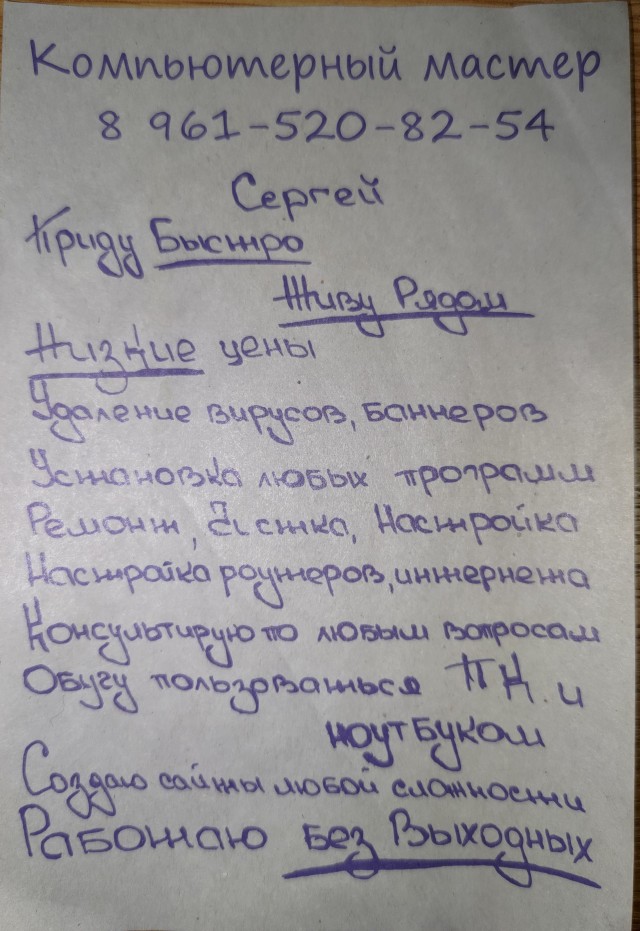 Компьютерный мастер
8 961-520-82-54
Сергей
Приду Быстро
Живу Рядом
Низкие цены
Удаление вирусов, баннеров
Установка любых программ
Ремонт, Чистка, Настройка
Настройка роутеров, интернета
Консультирую по любым вопросам
Обучу пользоваться ПК и
ноутбуком
Создаю сайты любой сложности
Работаю Без Выходных